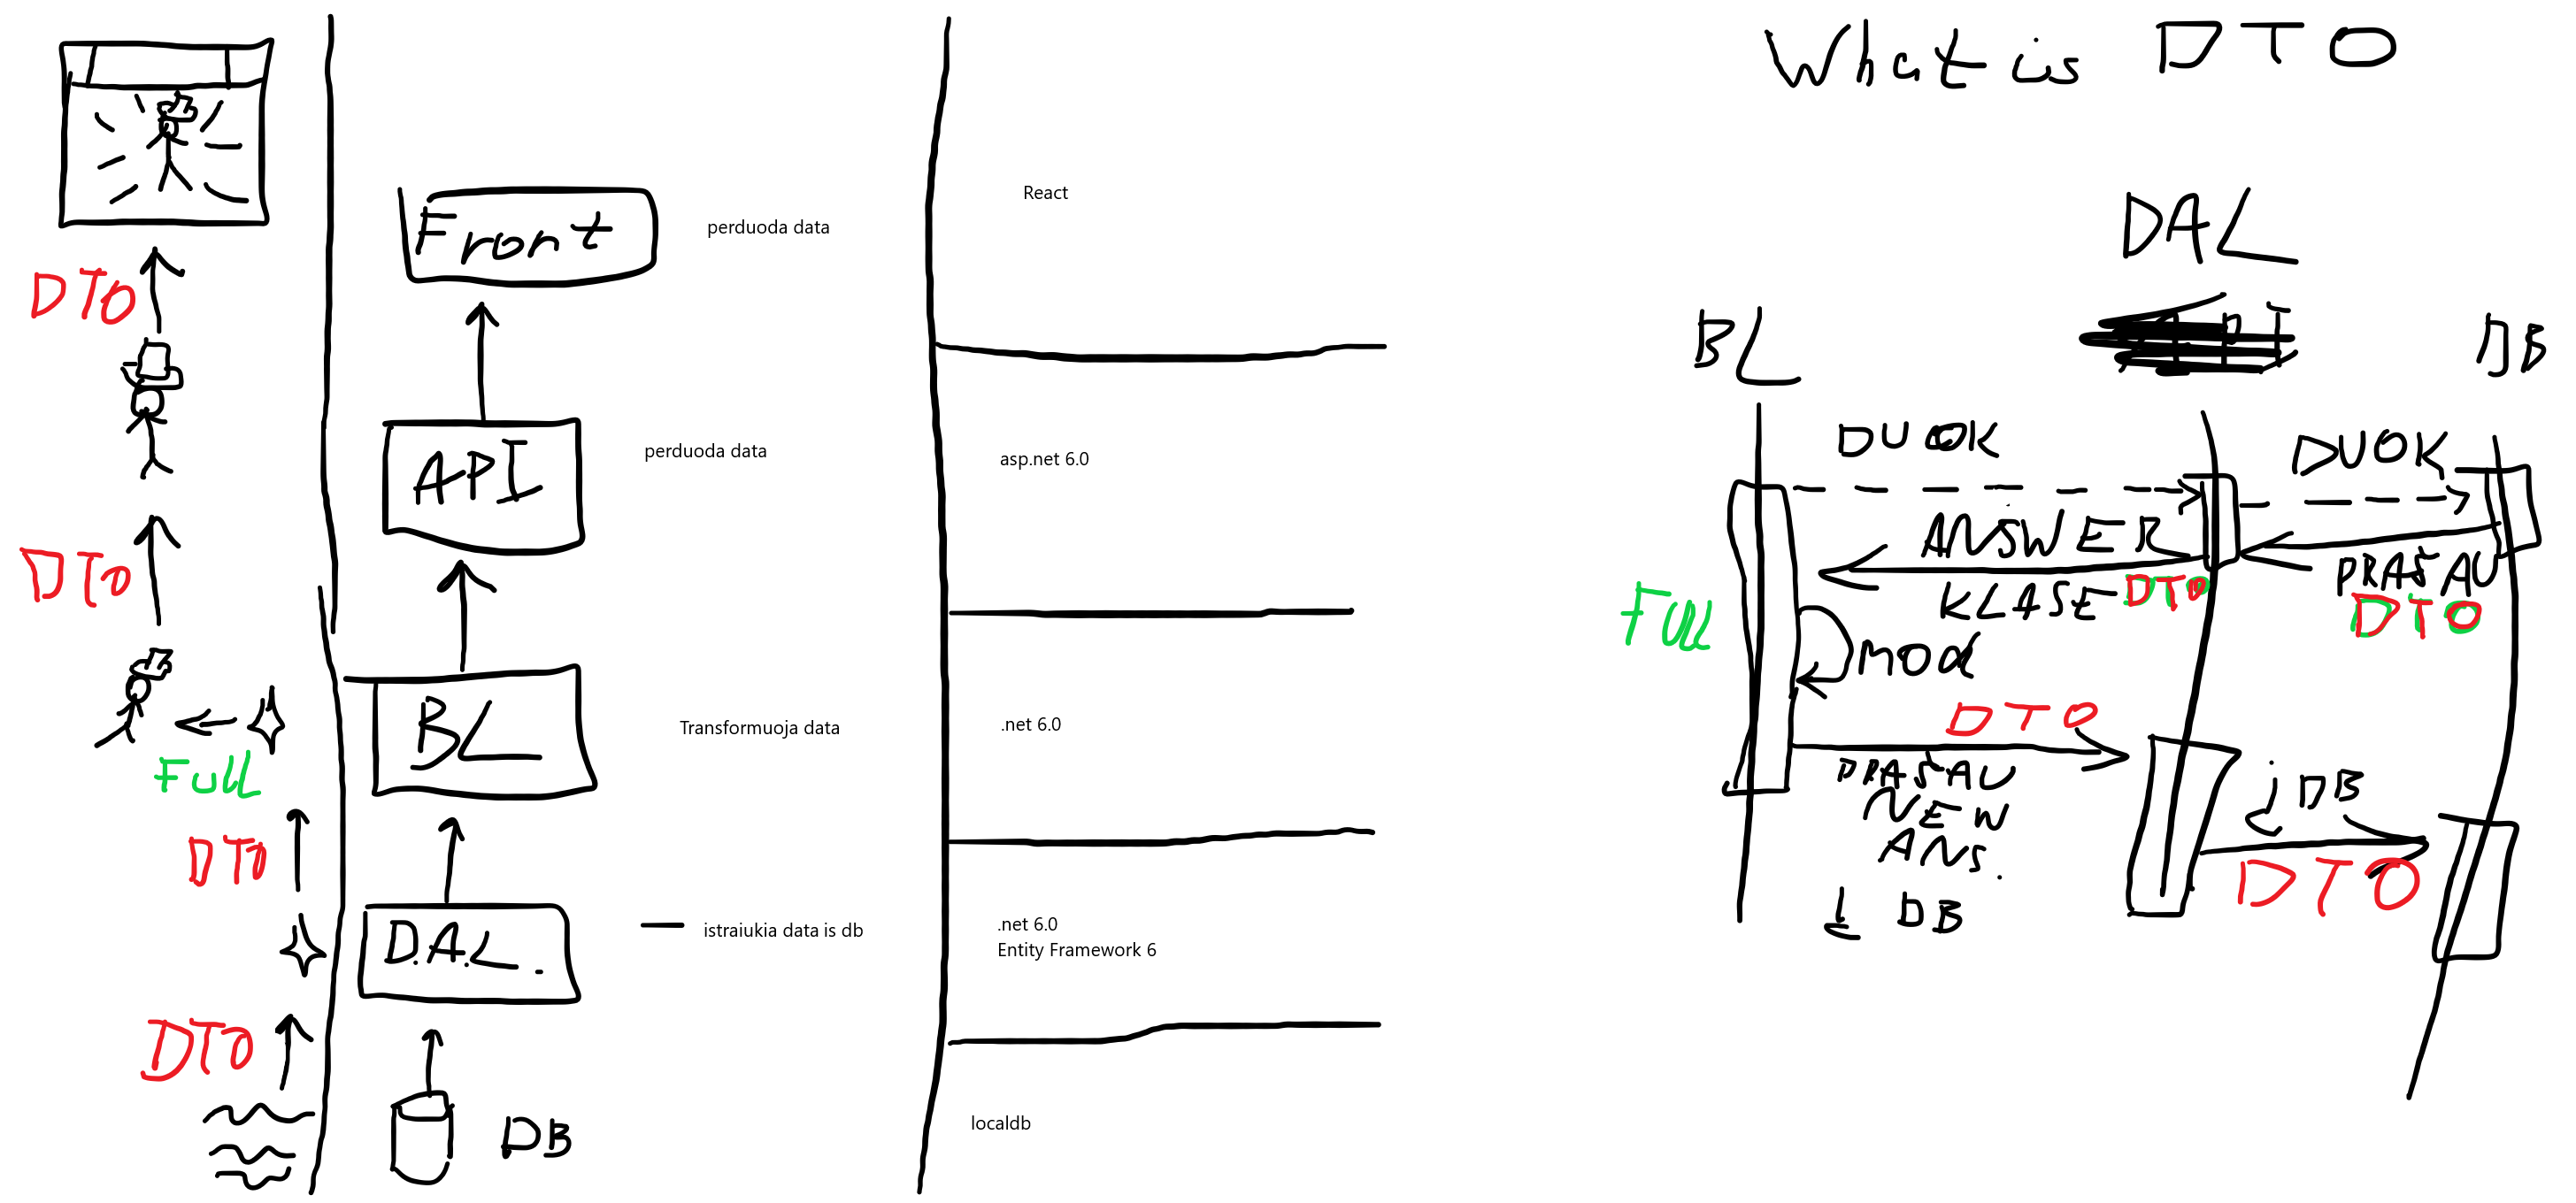 DTO
DTO
FULL
DTO
DTO
Front
perduoda data
API
perduoda data
BL
Transformuoja data
D.A.L.
istraiukia data is db
DB
React
asp.net 6.0
.net 6.0
.net 6.0
Entity Framework 6
localdb
What is DTO
DAL
BL
DB
DUOK
DUOK
ANSWER
PRAŠAU
KLASE DTO
DTO
FULL
MOd
DTO
PRAŠAU
NEW
ANS.
į DB
į DB
DTO